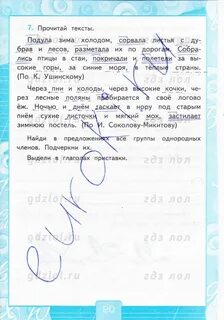 7. Прочитай тексты.
Подула зима холодом, сорвала листья с ду-
бра и лесов, разметала их по дорогам. Собра-
лись птицы в стаи, покричали и полетели за вы-
сокие горы, за синие моря, в тёплые страны.
(По К. Ушинскому)
Через пни и колоды, через высокие кочки, че-
рез лесные поляны пробирается в своё логово
ёж. Ночью и днём таскает в нору под старым
пнём сухие листочки и мягкий мох, застилает
зимнюю постель. (По И. Соколову-Микитову)
Найди в предложениях все группы однородных
членов. Подчеркни их.
Выдели в глаголах приставки.
90